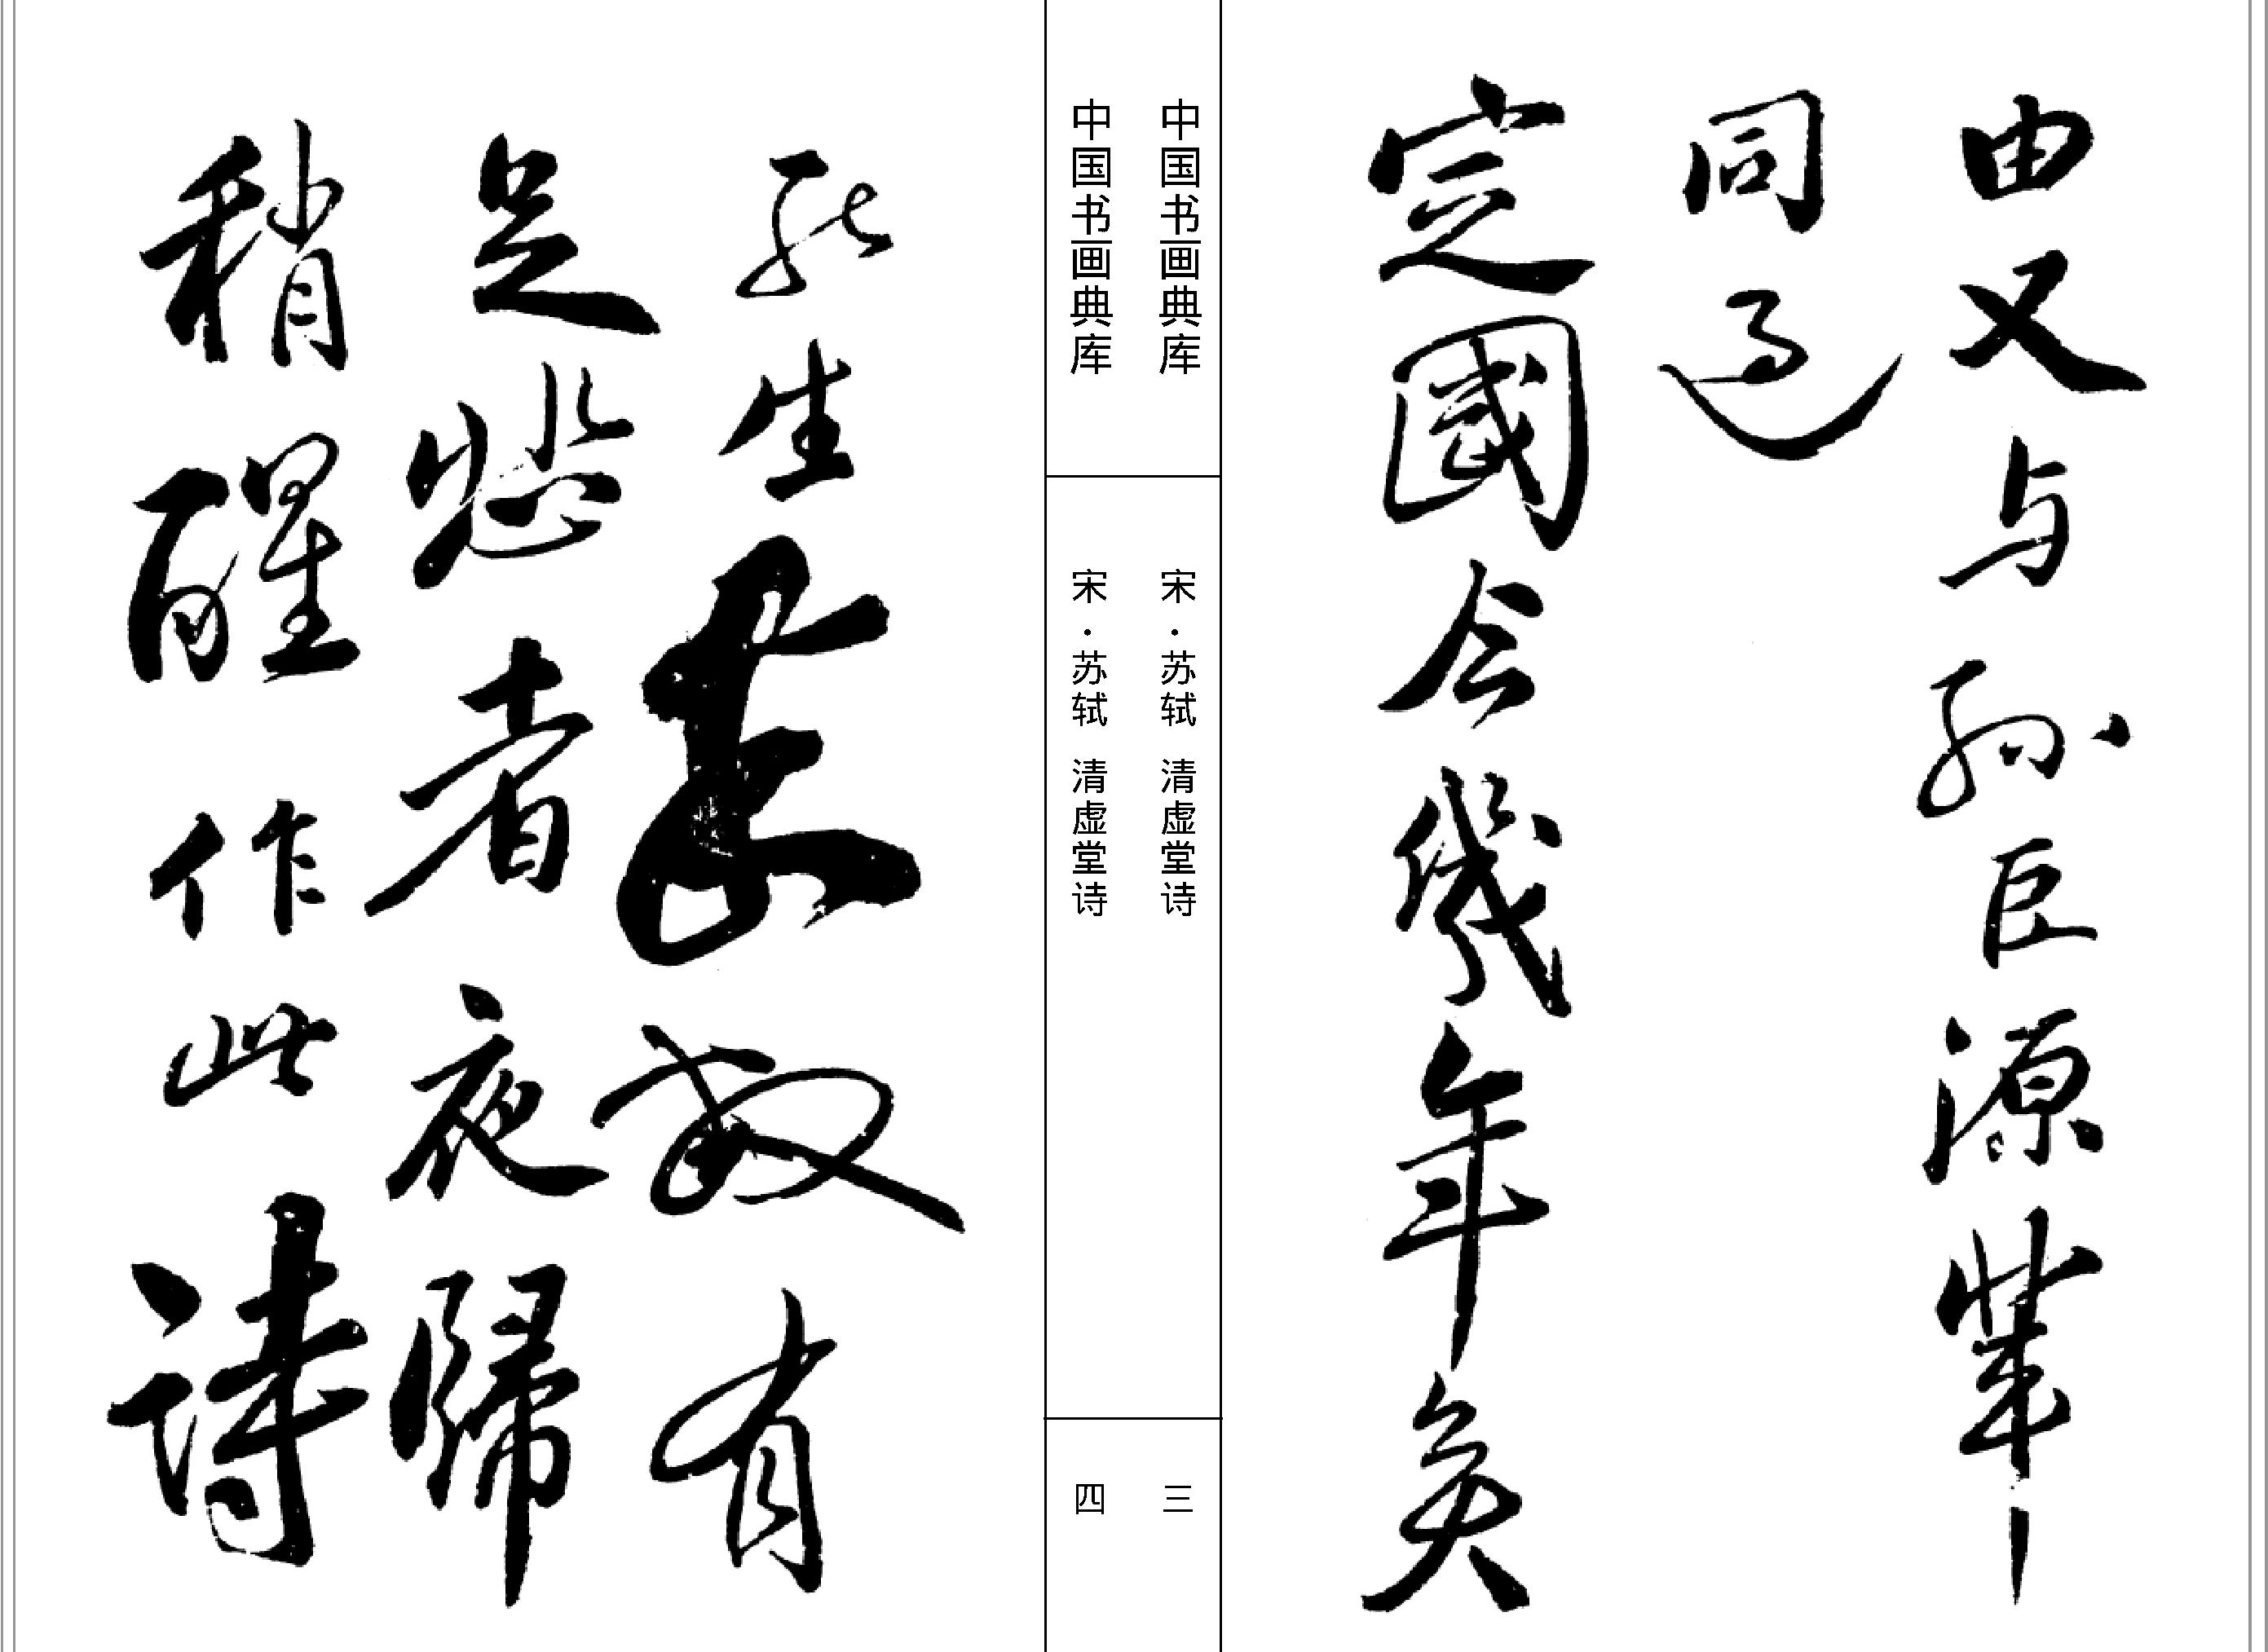 由又与孙巨源輩
同過
定國今幾年矣
死生契闊有
足悲者夜歸
稍醒作此詩
中国书画典库
宋·苏轼 清虚堂诗
三
中国书画典库
宋·苏轼 清虚堂诗
四